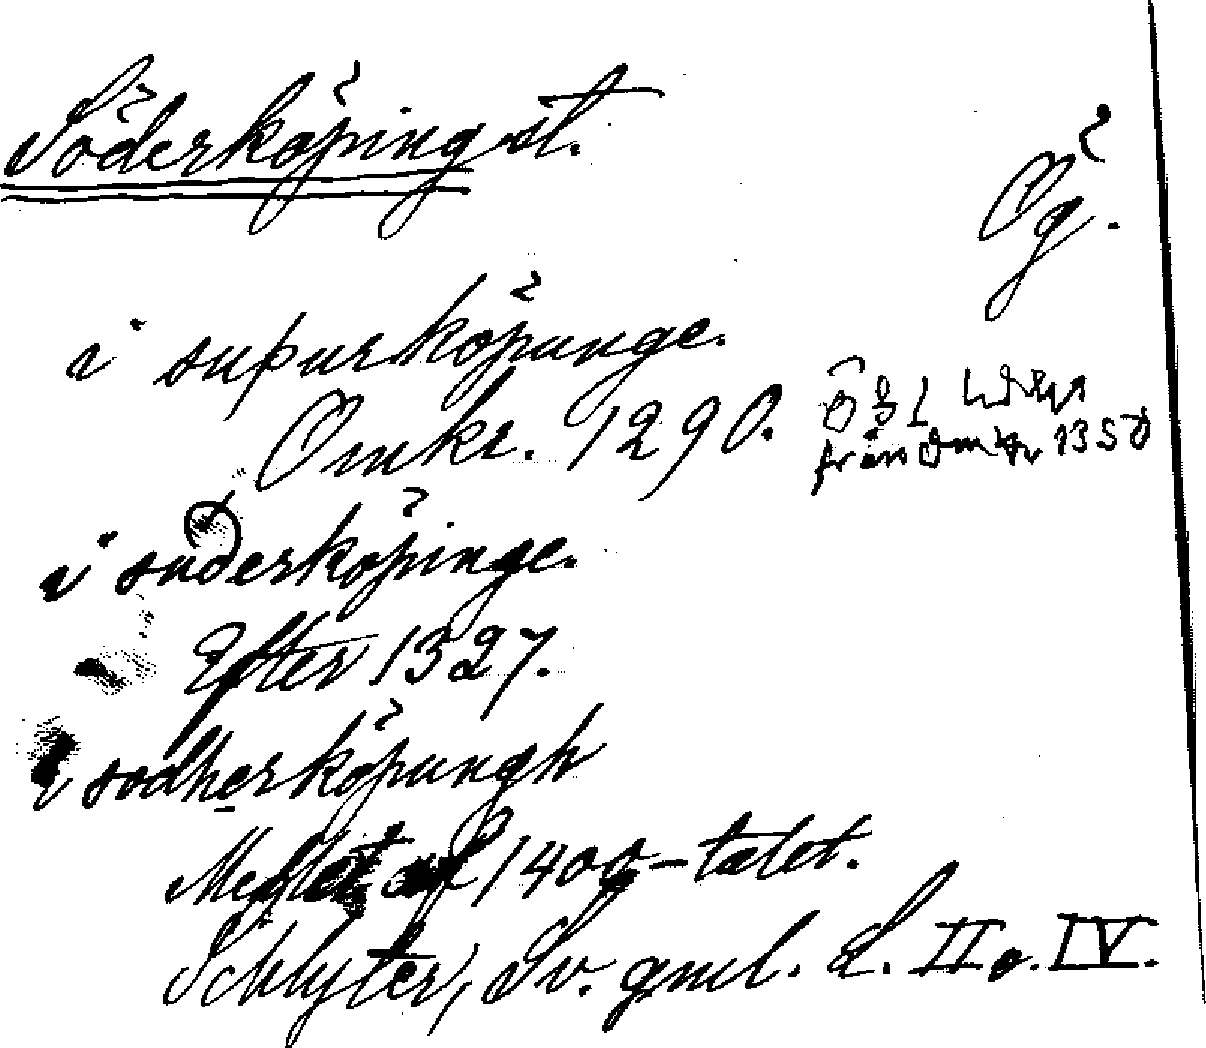 Söderköping st.
Ög.
i suþurköpunge.
Omkr. 1290. ÖgL
från omkr 1350
i suderköpinge.
Efter 1327.
i sodherköpungh
Medlet af 1400-talet.
Schlyter, Sv. gml. L. II o. IV.